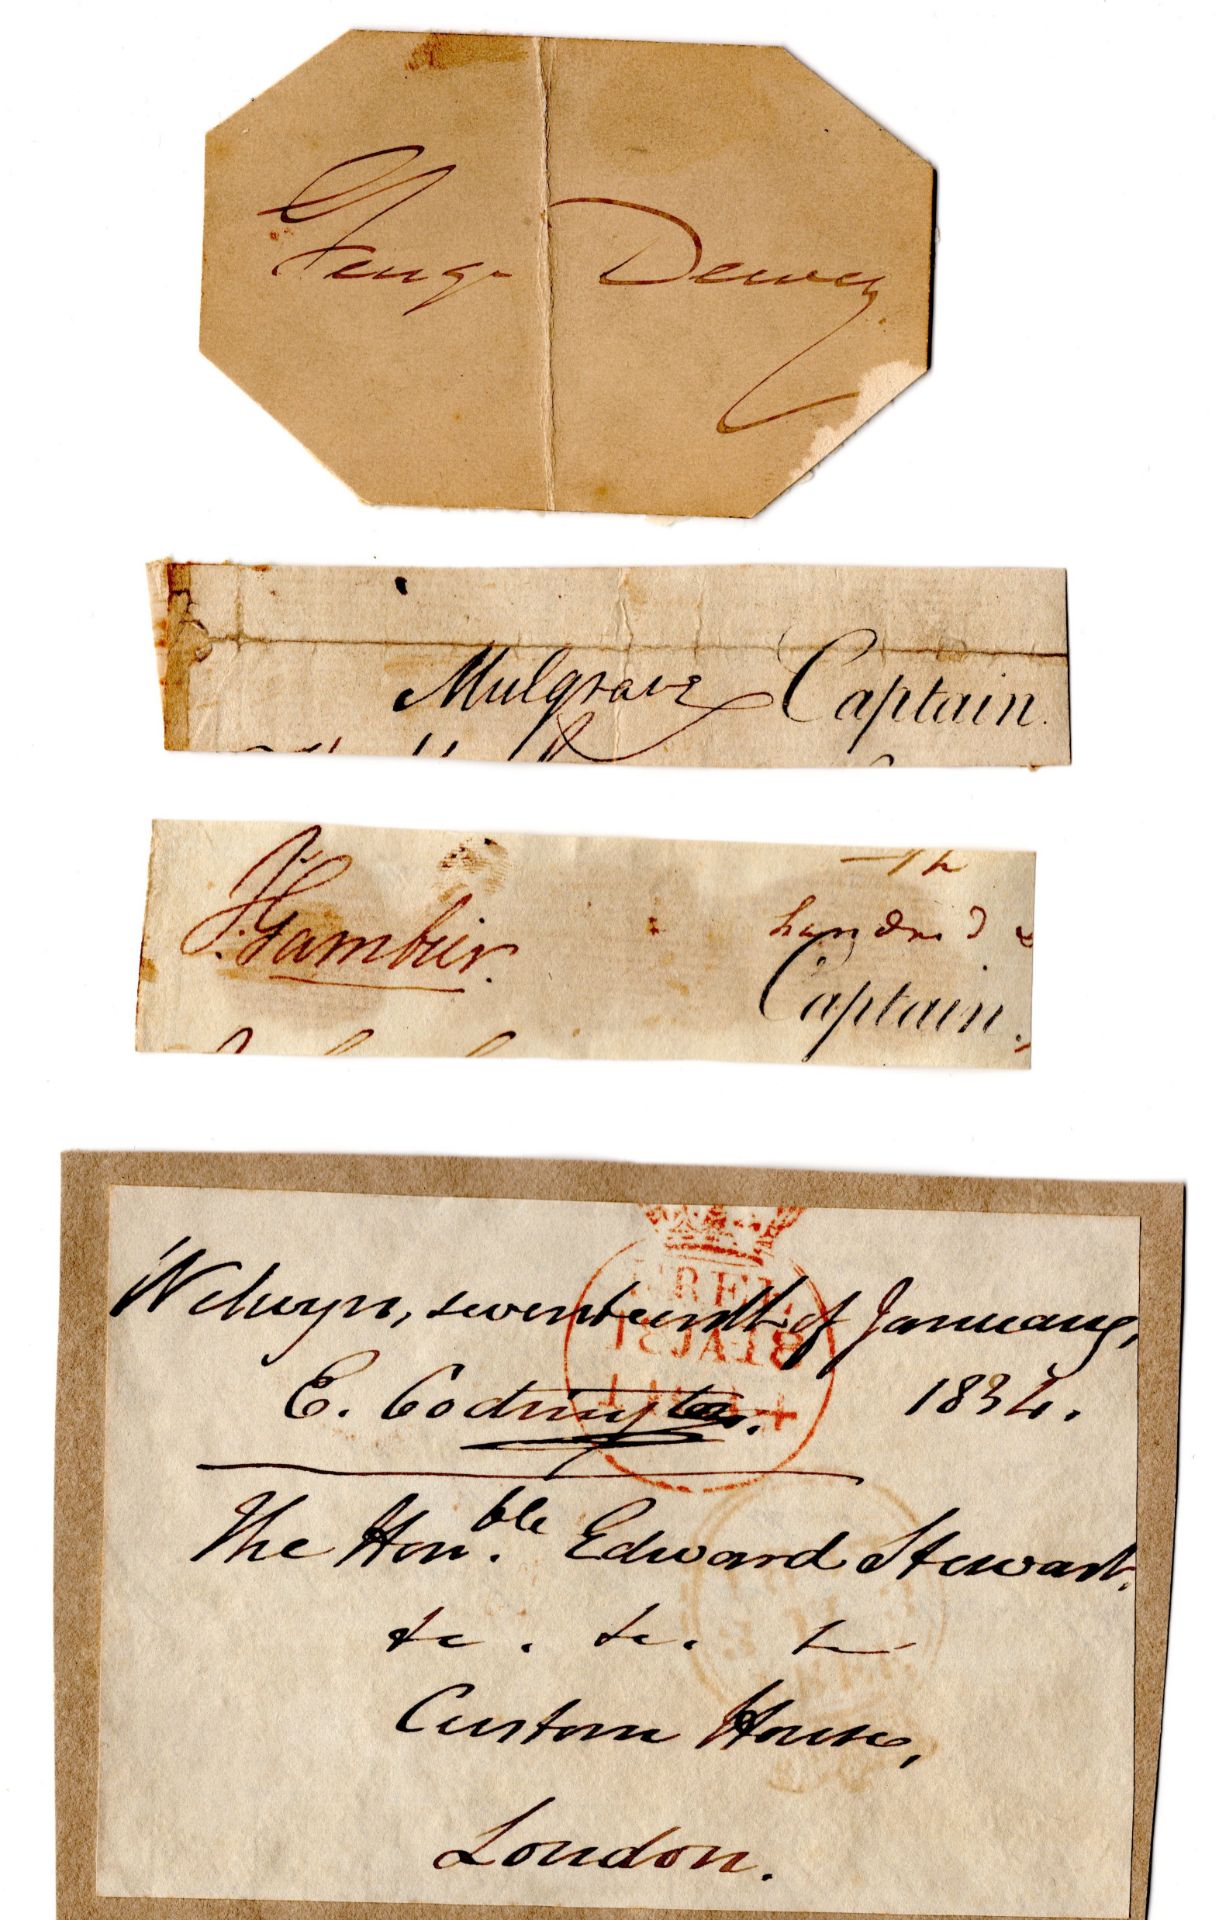 George Dewey
Mulgrave Captain.
th
J. Gambier.
hundred &
Captain.
Welwyn, seventeenth of January,
FREE
18JA1834
E. Codrington. 1834.
The Hon.ble Edward Stewart.
&c. &c. &c
Custom House,
London.